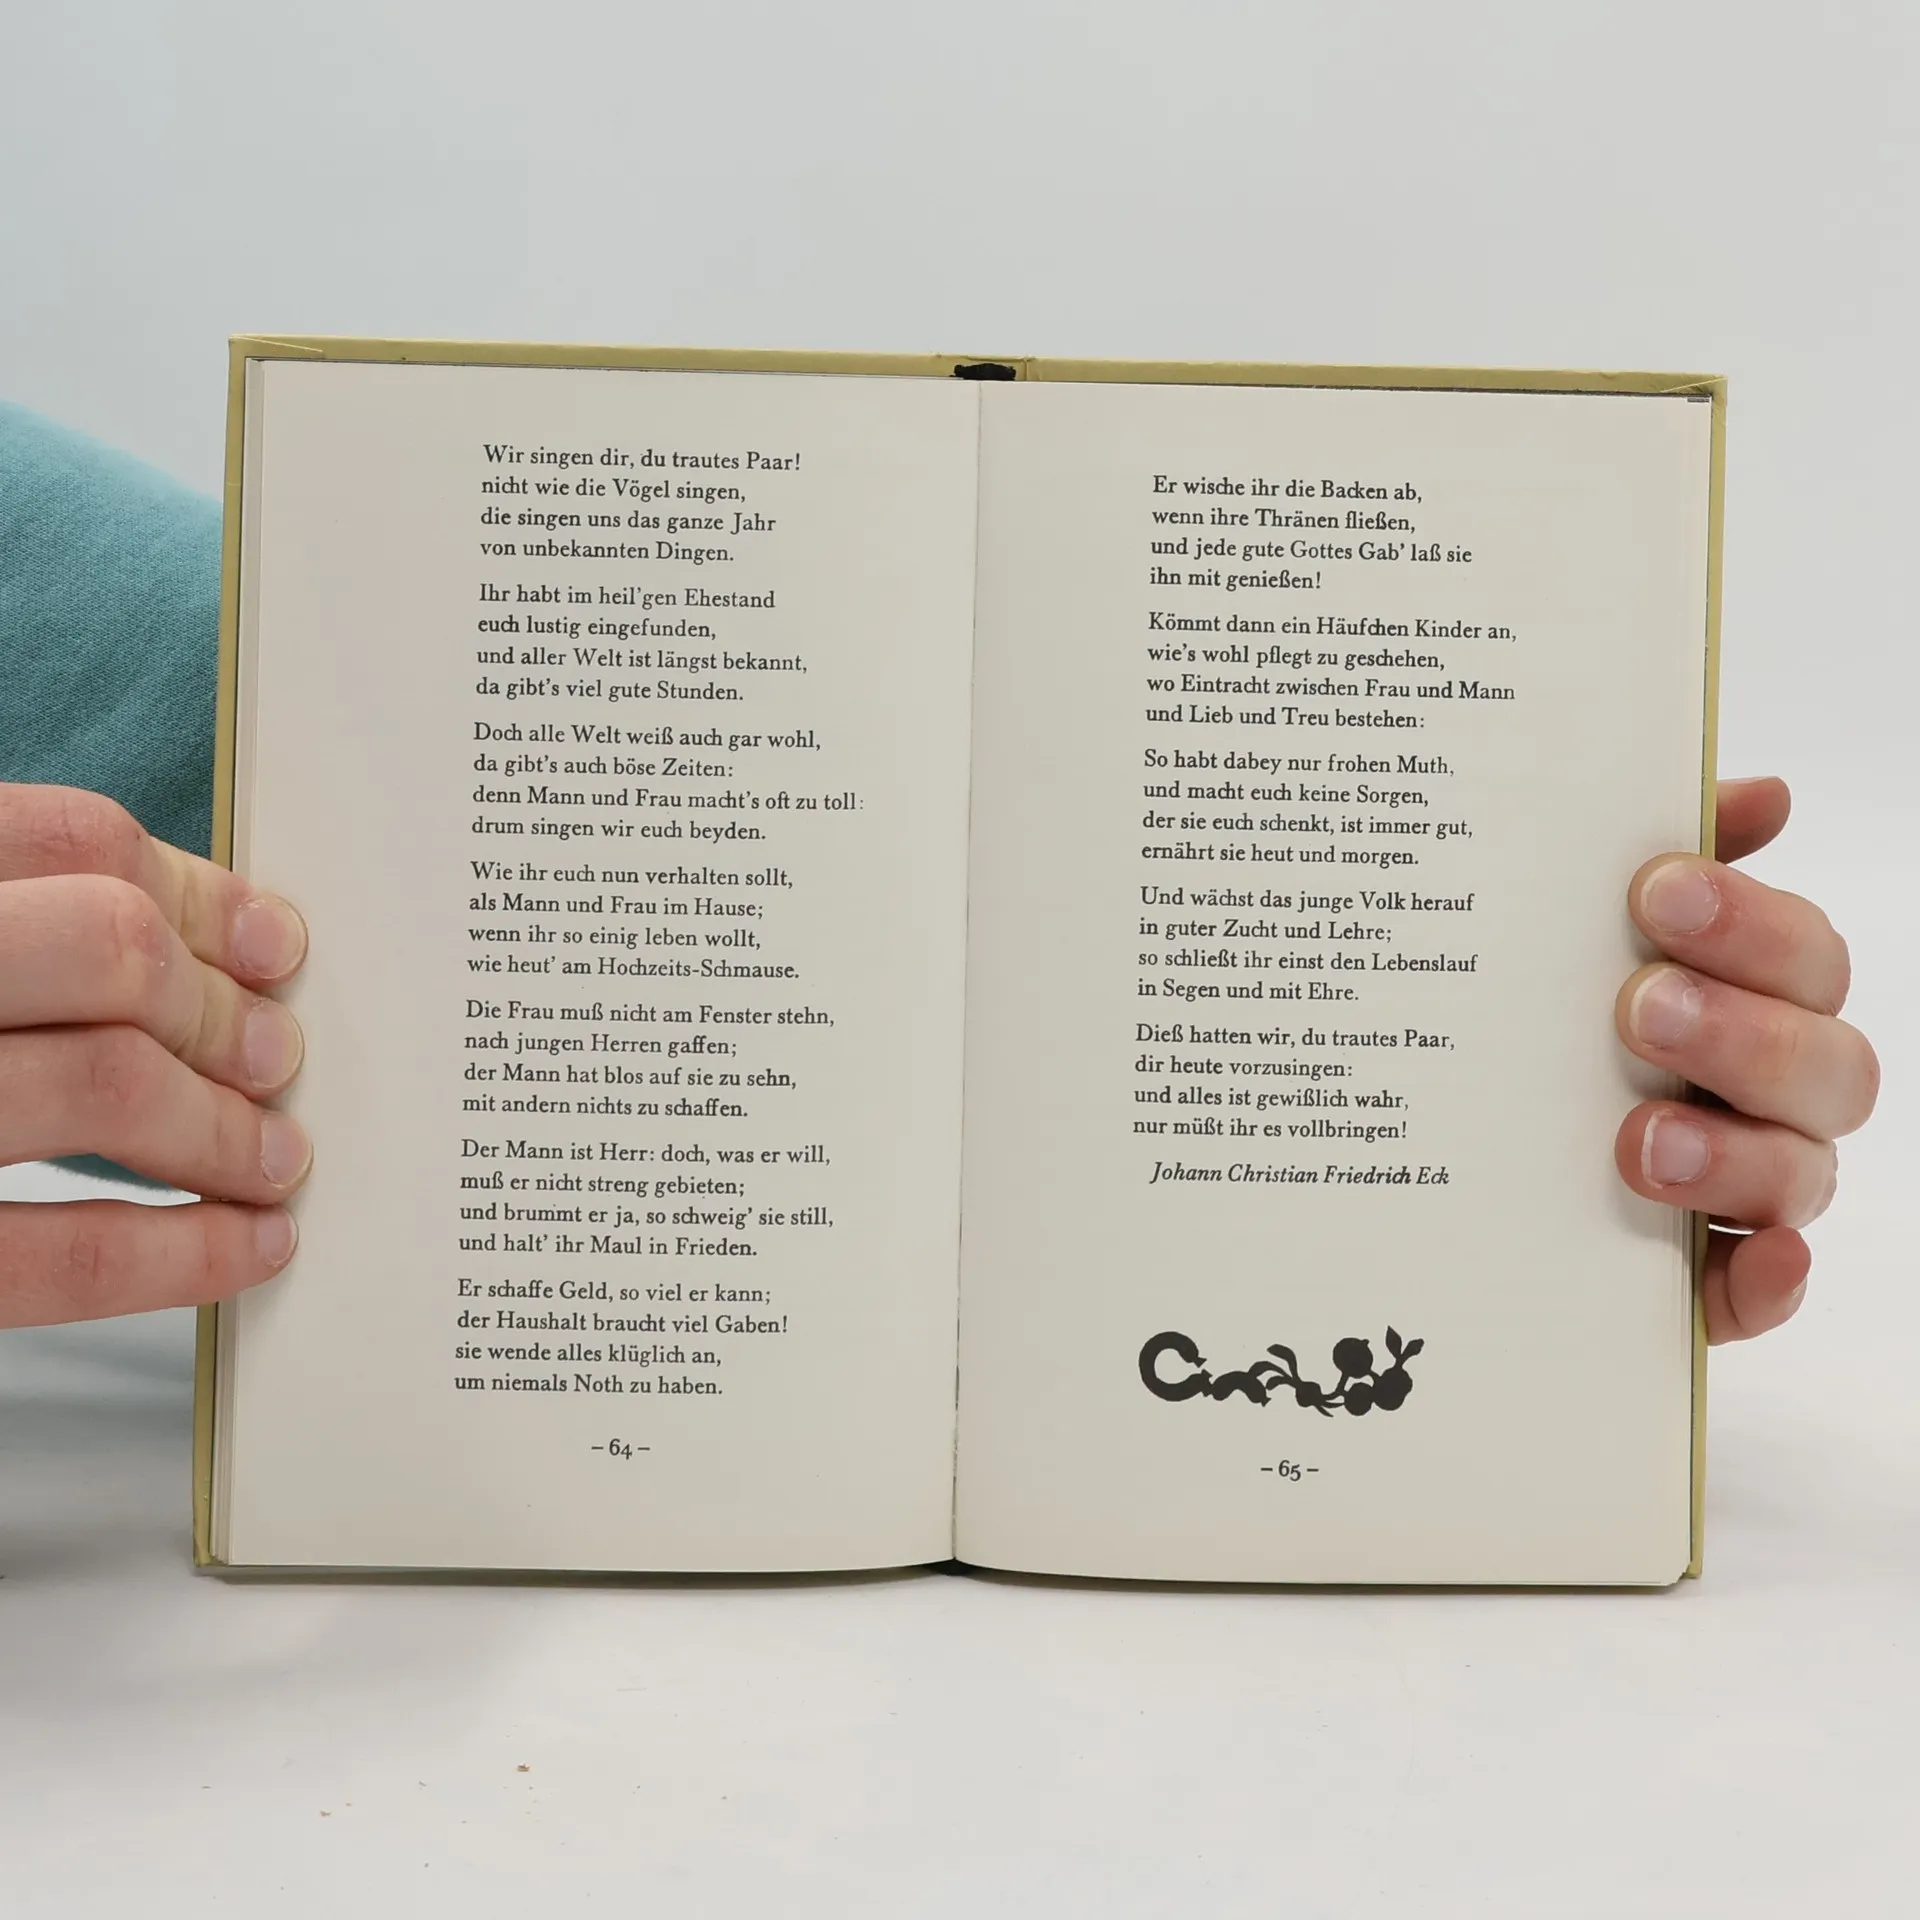 Wir singen dir, du trautes Paar!
nicht wie die Vögel singen,
die singen uns das ganze Jahr
von unbekannten Dingen.
Ihr habt im heil’gen Ehestand
euch lustig eingefunden,
und aller Welt ist längst bekannt,
da gibt’s viel gute Stunden.
Doch alle Welt weiß auch gar wohl,
da gibt’s auch böse Zeiten:
denn Mann und Frau macht’s oft zu toll:
drum singen wir euch beyden.
Wie ihr euch nun verhalten sollt,
als Mann und Frau im Hause;
wenn ihr so einig leben wollt,
wie heut’ am Hochzeits-Schmause.
Die Frau muß nicht am Fenster stehn,
nach jungen Herren gaffen;
der Mann hat blos auf sie zu sehn,
mit andern nichts zu schaffen.
Der Mann ist Herr: doch, was er will,
muß er nicht streng gebieten;
und brummt er ja, so schweig’ sie still,
und halt’ ihr Maul in Frieden.
Er schaffe Geld, so viel er kann;
der Haushalt braucht viel Gaben!
sie wende alles klüglich an,
um niemals Noth zu haben.
– 64 –
Er wische ihr die Backen ab,
wenn ihre Thränen fließen,
und jede gute Gottes Gab’ laß sie
ihn mit genießen!
Kömmt dann ein Häufchen Kinder an,
wie’s wohl pflegt zu geschehen,
wo Eintracht zwischen Frau und Mann
und Lieb und Treu bestehen:
So habt dabey nur frohen Muth,
und macht euch keine Sorgen,
der sie euch schenkt, ist immer gut,
ernährt sie heut und morgen.
Und wächst das junge Volk herauf
in guter Zucht und Lehre;
so schließt ihr einst den Lebenslauf
in Segen und mit Ehre.
Dieß hatten wir, du trautes Paar,
dir heute vorzusingen:
und alles ist gewißlich wahr,
nur müßt ihr es vollbringen!
Johann Christian Friedrich Eck
– 65 –